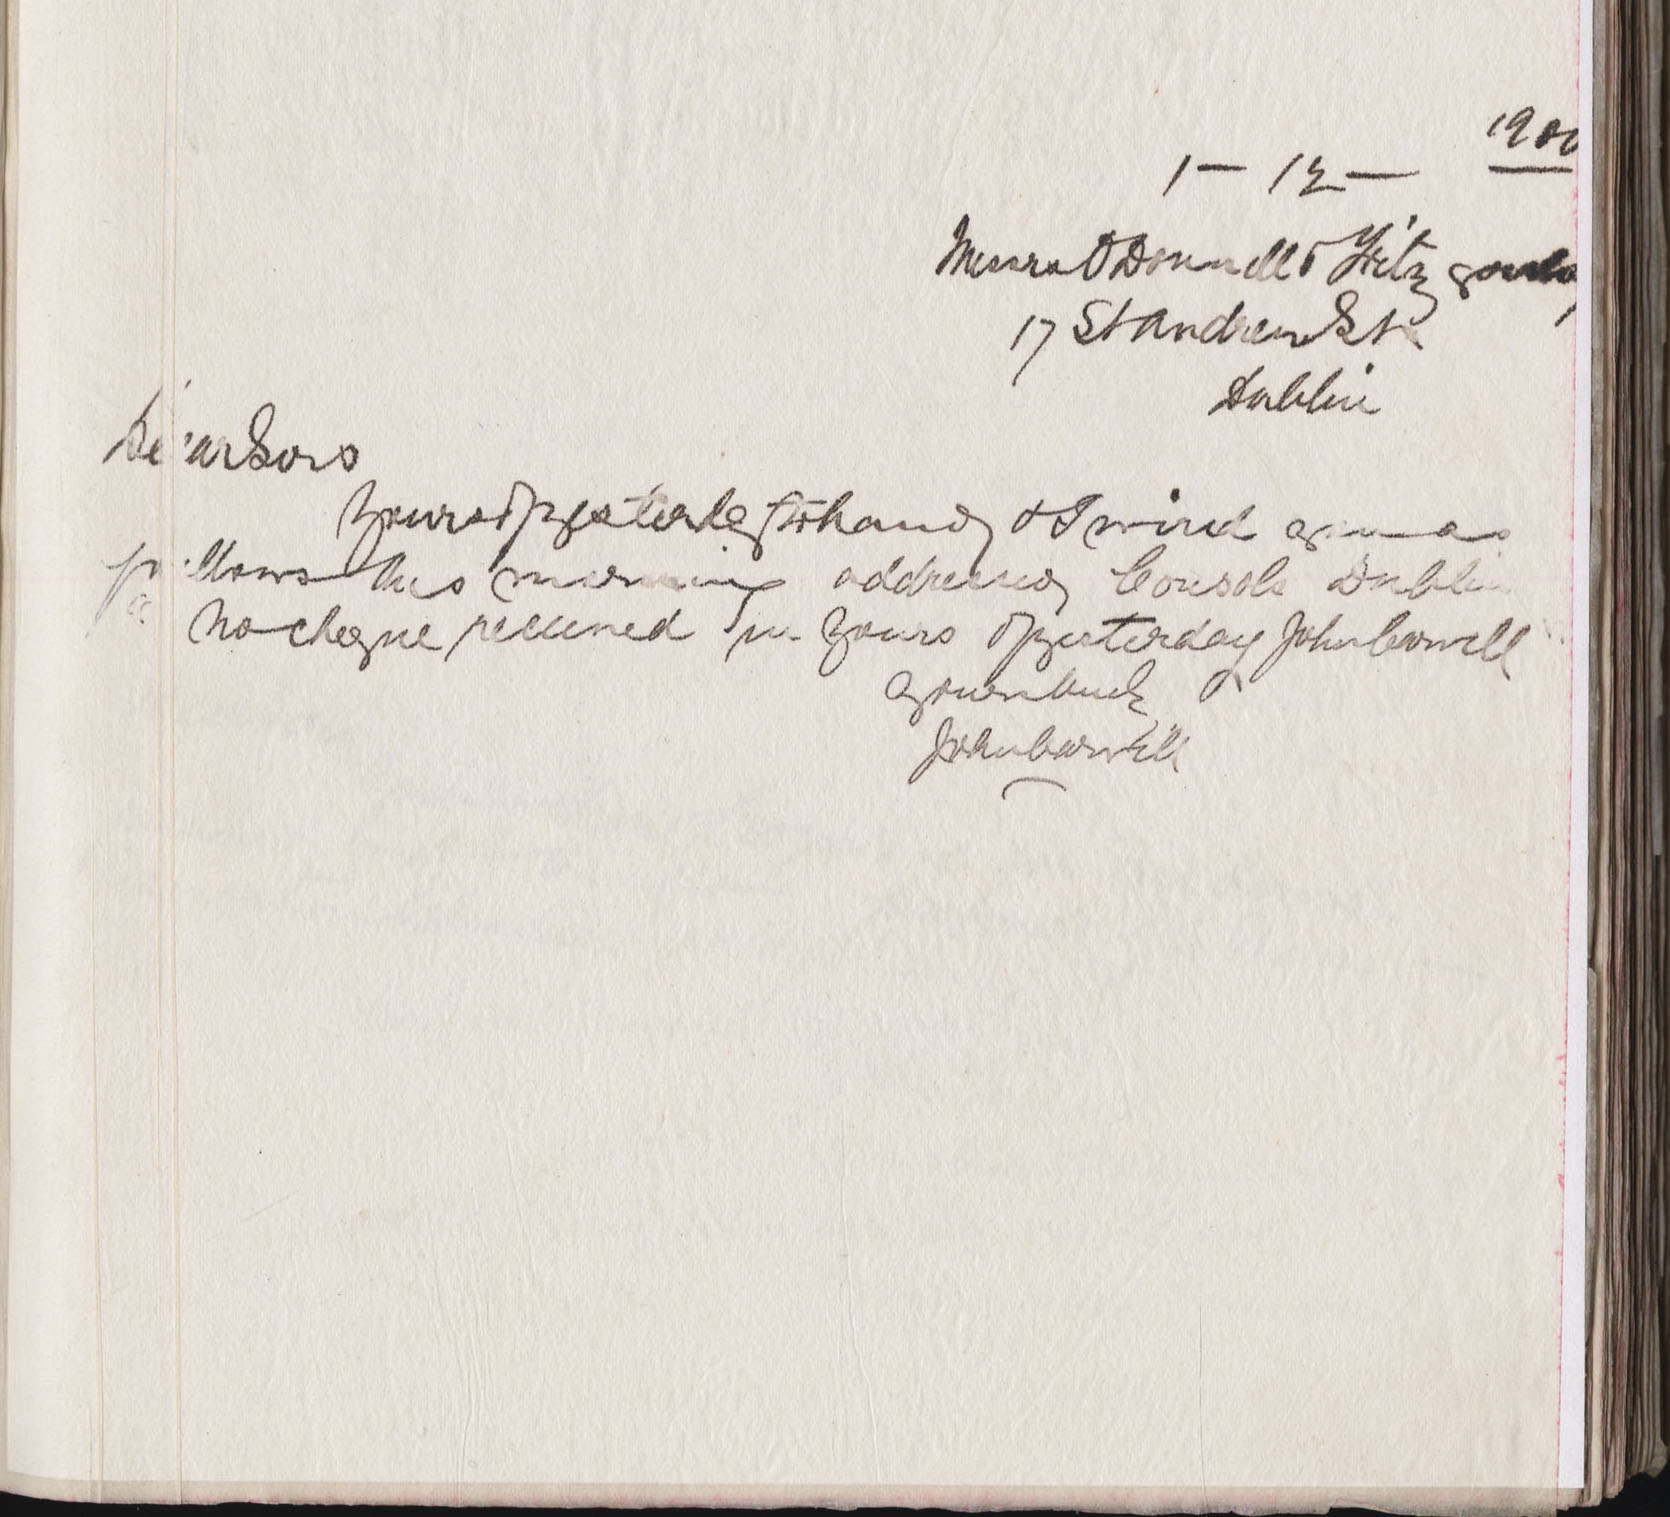 1900
1 — 12 —
Messrs O'Donnell & Fitzgerald
17 St Andrew St
Dublin
Dear Sirs
Yours of yesterday to hand & I wired you as
follows this morning addressed Consols Dublin
No cheque received in yours of yesterday John Carvill
Yours truly
John Carvill